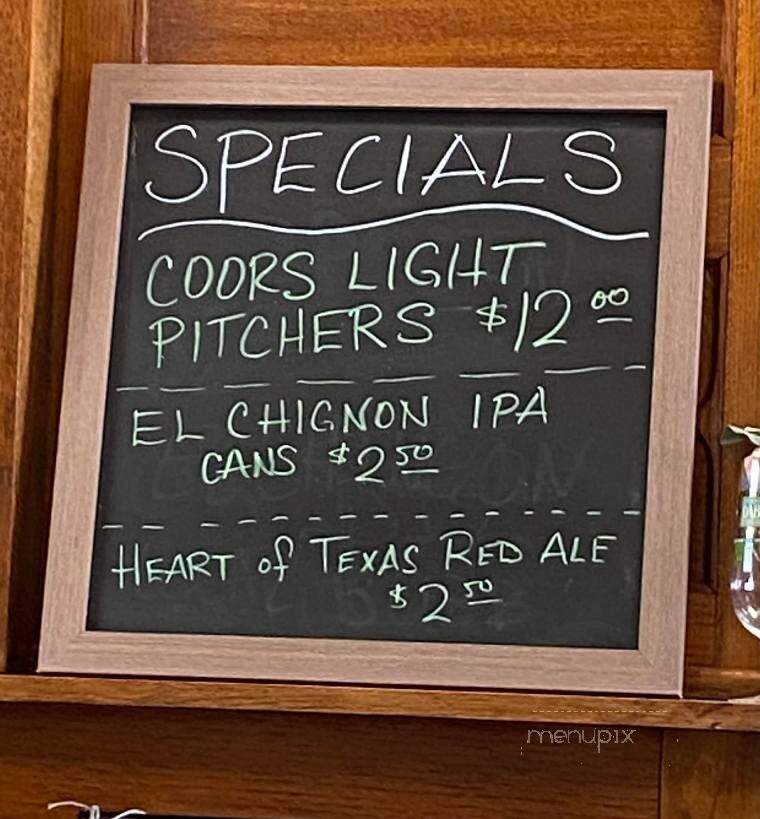 SPECIALS
COORS LIGHT
PITCHERS $12 00
EL CHIGNON IPA
CANS $2 50
HEART of TEXAS RED ALE
$2 50
menupix